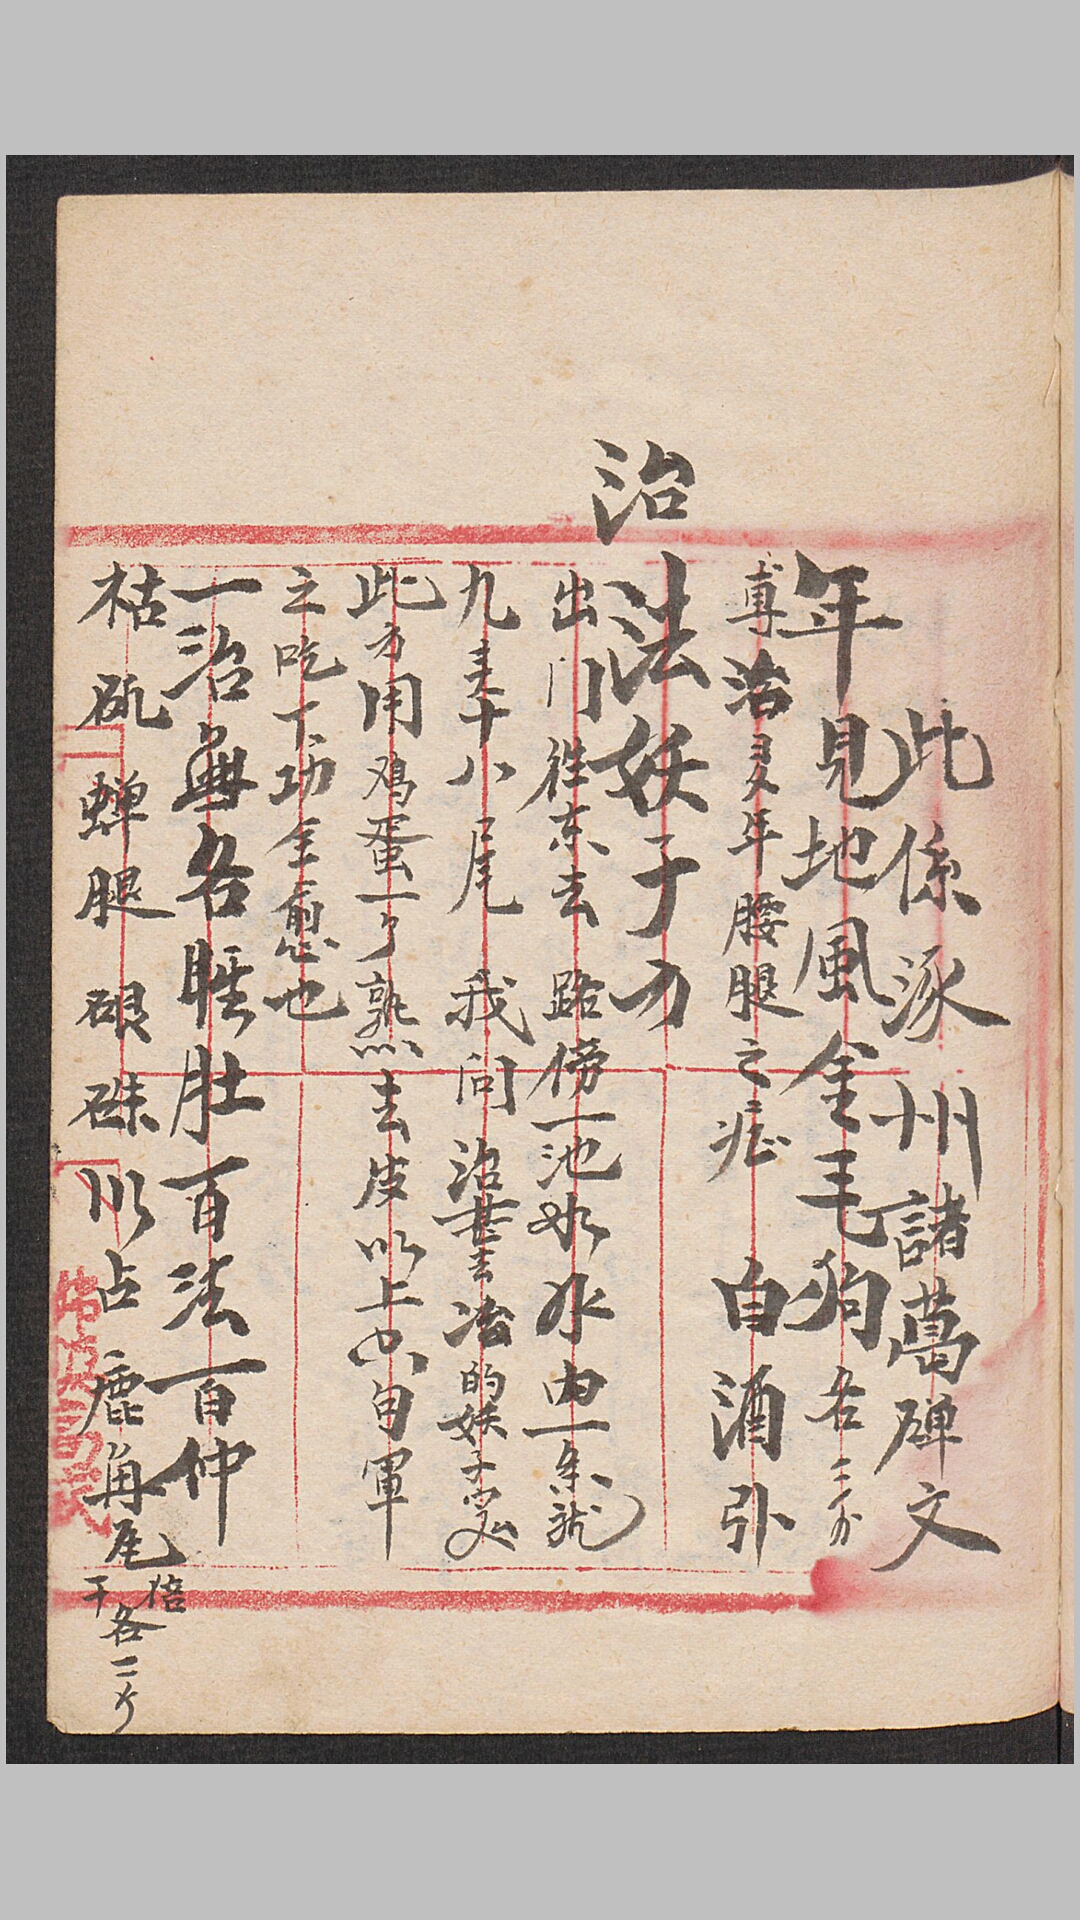 此係涿州諸葛碑文
年見地風金毛狗各三分
專治多年腰腿之症 白酒引
治法妖子力
出門往東去路傍一池水水內一条龍
九頭十八尾我问治甚去治的妖子
此方用鸡蛋一个熟去皮以上六句軍
之吃下功全愈也
一治無各脹肚百法百仲
枯矾蟬腿硍硃川占鹿角尾
倍干各二个